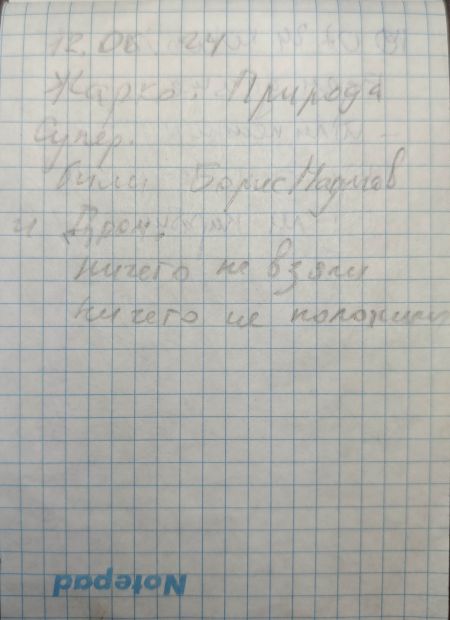 12.06 24
Жарко. Природа
Супер.
были Борис
и Дрон.
ничего не взяли
ничего не положили
Notepad